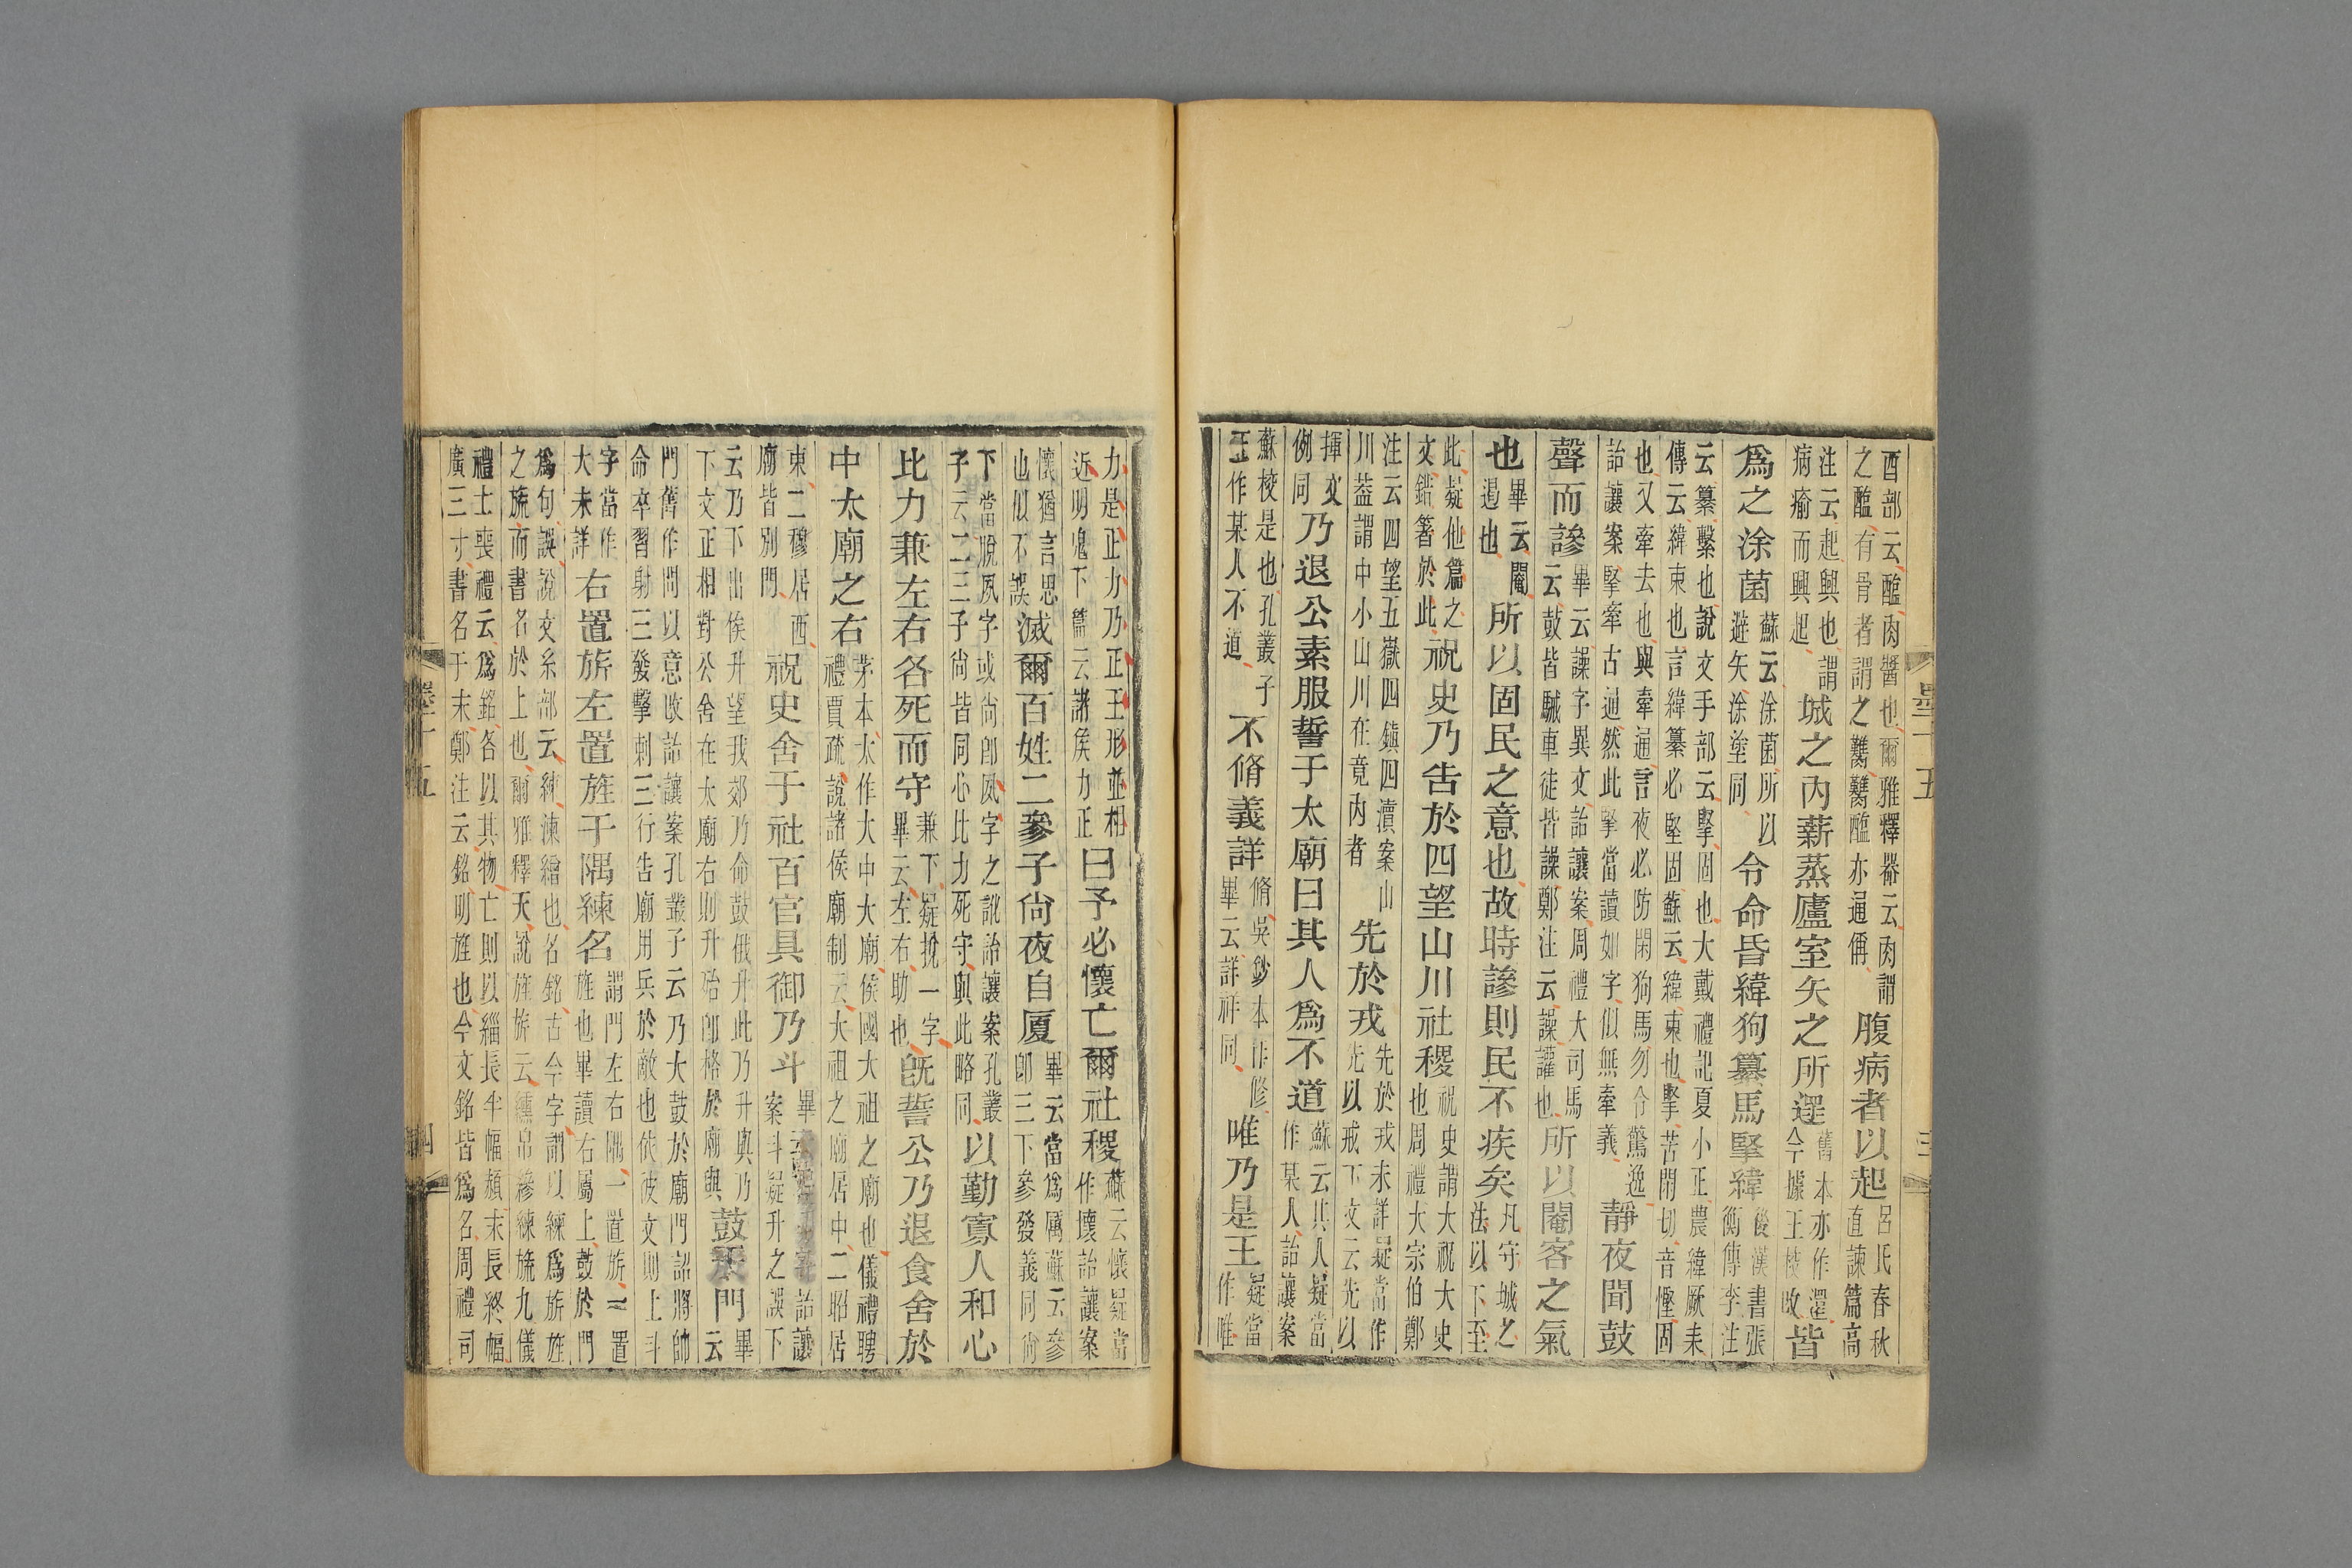 酉部云醢肉醬也爾雅釋器云肉謂
之醢有骨者謂之臡臡醢亦通偁
腹病者以起
呂氏春秋
直諫篇高
注云起興也謂
病瘉而興起
城之內薪蒸廬室矢之所遝
舊本亦作還
今據王校改
皆
爲之涂菌
蘇云涂菌所以
避矢涂塗同
令命昏緯狗纂馬掔緯
後漢書張
衡傳李注
云纂繫也說文手部云掔固也大戴禮記夏小正農緯厥耒
傳云緯束也言緯纂必堅固蘇云緯束也掔苦閑切音慳固
也又牽去也與牽通言夜必防閑狗馬勿令驚逸
詒讓案掔牽古通然此掔當讀如字似無牽義
靜夜聞鼓
聲而譟
畢云譟字異文詒讓案周禮大司馬
云鼓皆駴車徒皆譟鄭注云譟讙也
所以閹客之氣
也
畢云閹
遏也
所以固民之意也故時譟則民不疾矣
凡守城之
法以下至
此疑他篇之
文錯箸於此
祝史乃告於四望山川社稷
祝史謂大祝大史
也周禮大宗伯鄭
注云四望五嶽四鎮四瀆案山
川葢謂中小山川在竟內者
先於戎
先於戎未詳疑當作
先以戒下文云先以
揮文
例同
乃退公素服誓于太廟曰其人爲不道
蘇云其人疑當
作某人詒讓案
蘇校是也孔叢子
正作某人不道
不脩義詳
脩吳鈔本作修
畢云詳祥同
唯乃是王
疑當
作唯
力是正力乃正王形並相
近明鬼下篇云諸侯力正
曰予必懷亡爾社稷
蘇云懷疑當
作壞詒讓案
懷猶言思
也似不誤
滅爾百姓二參子尙夜自厦
畢云當爲厲蘇云參
卽三下參發義同尙
下當脫夙字或尙卽夙字之訛詒讓案孔叢
子云二三子尙皆同心比力死守與此略同
以勤寡人和心
比力兼左右各死而守
兼下疑挩一字
畢云左右助也
旣誓公乃退食舍於
中太廟之右
茅本太作大中大廟侯國大祖之廟也儀禮聘
禮賈疏說諸侯廟制云大祖之廟居中二昭居
東二穆居西
廟皆別門
祝史舍于社百官具御乃斗
詒讓
案斗疑升之誤下
云乃下出俟升望我郊乃命鼓俄升此乃升與乃
下文正相對公舍在太廟右則升殆卽格於廟與
鼓於門
畢
云
門舊作問以意改詒讓案孔叢子云乃大鼓於廟門詔將帥
命卒習射三發擊刺三行告廟用兵於敵也依彼文則上斗
字當作
大未詳
右置旂左置旌于隅練名
謂門左右隅一置旂一置
旌也畢讀右屬上鼓於門
爲句誤說文糸部云練湅繒也名銘古今字謂以練爲旂旌
之旒而書名於上也爾雅釋天說旌旂云纁帛縿練旒九儀
禮士喪禮云爲銘各以其物亡則以緇長半幅䞓末長終幅
廣三寸書名于末鄭注云銘明旌也今文銘皆爲名周禮司